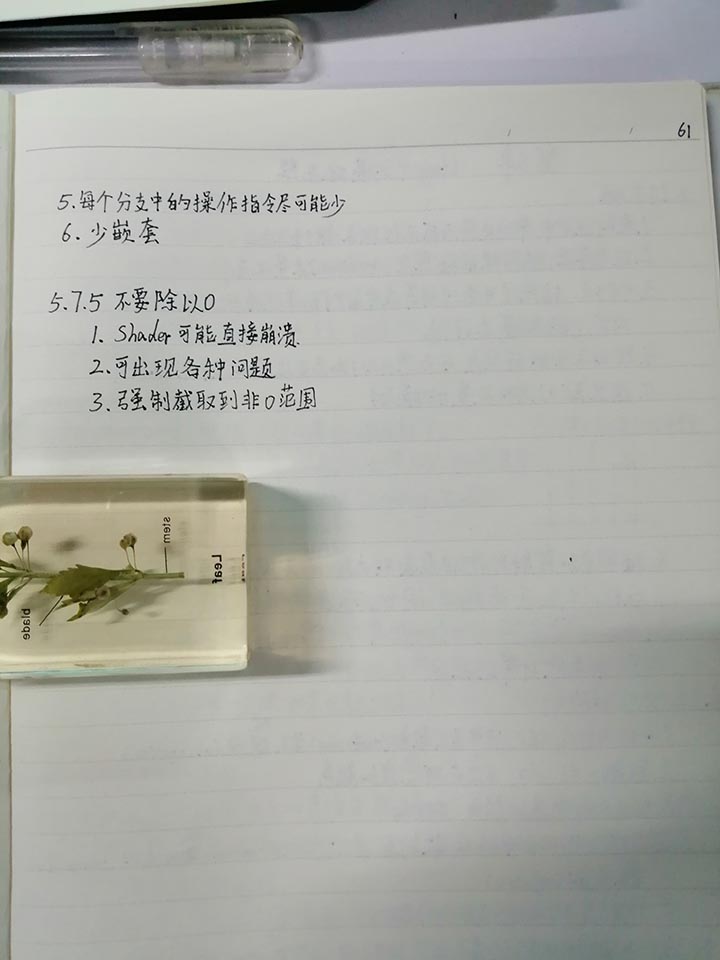 61
5.每个分支中的操作指令尽可能少
6.少嵌套
5.7.5 不要除以0
1. Shader可能直接崩溃
2.可出现各种问题
3.强制截取到非0范围
stem
Leaf
blade